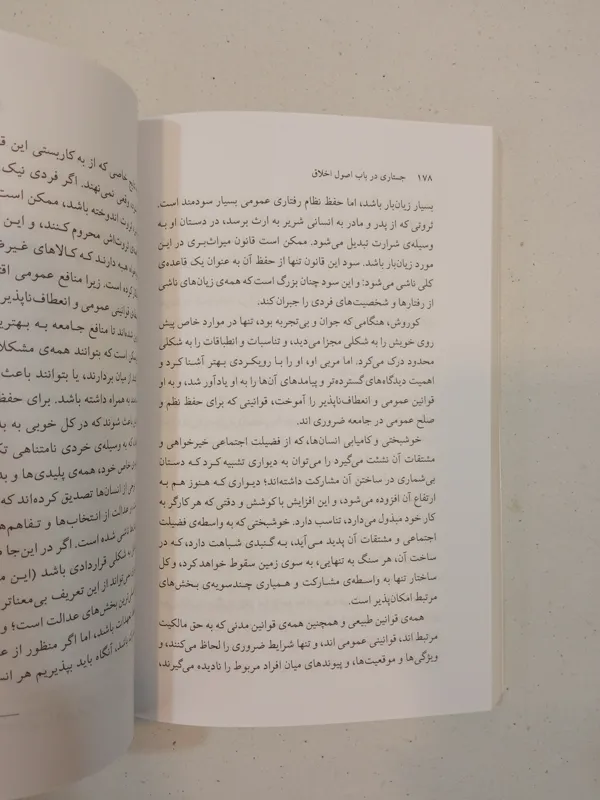 ۱۷۸ جستاری در باب اصول اخلاق
بسیار زیان‌بار باشد، اما حفظ نظام رفتاری عمومی بسیار سودمند است.
ثروتی که از پدر و مادر به انسانی شریر به ارث برسد، در دستان او به
وسیله‌ی شرارت تبدیل می‌شود. ممکن است قانون میراث‌بری در این
مورد زیان‌بار باشد. سود این قانون تنها از حفظ آن به عنوان یک قاعده‌ی
کلی ناشی می‌شود؛ و این سود چنان بزرگ است که همه‌ی زیان‌های ناشی
از رفتارها و شخصیت‌های فردی را جبران کند.
کوروش، هنگامی که جوان و بی‌تجربه بود، تنها در موارد خاص پیش
روی خویش را به شکلی مجزا می‌دید، و تناسبات و انطباقات را به شکلی
محدود درک می‌کرد. اما مربی او، او را با رویکردی بهتر آشنا کرد و
اهمیت دیدگاه‌های گسترده‌تر و پیامدهای آن‌ها را به او یادآور شد، و به او
قوانین عمومی و انعطاف‌ناپذیر را آموخت، قوانینی که برای حفظ نظم و
صلح عمومی در جامعه ضروری اند.
خوشبختی و کامیابی انسان‌ها، که از فضیلت اجتماعی خیرخواهی و
مشتقات آن نشئت می‌گیرد را می‌توان به دیواری تشبیه کرد که دستان
بی‌شماری در ساختن آن مشارکت داشته‌اند؛ دیواری که هنوز هم به
ارتفاع آن افزوده می‌شود، و این افزایش با کوشش و دقتی که هر کارگر به
کار خود مبذول می‌دارد، تناسب دارد. خوشبختی که به واسطه‌ی فضیلت
اجتماعی و مشتقات آن پدید می‌آید، به گنبدی شباهت دارد، که در
ساخت آن، هر سنگ به تنهایی، به سوی زمین سقوط خواهد کرد، و کل
ساختار تنها به واسطه‌ی مشارکت و همیاری چندسویه‌ی بخش‌های
مرتبط امکان‌پذیر است.
همه‌ی قوانین طبیعی و همچنین همه‌ی قوانین مدنی که به حق مالکیت
مرتبط اند، قوانینی عمومی اند، و تنها شرایط ضروری را لحاظ می‌کنند، و
ویژگی‌ها و موقعیت‌ها، و پیوندهای میان افراد مربوط را نادیده می‌گیرند،
خاصی که از به کاربستی این
وقعی نمی‌نهند. اگر فردی نیک
ثروت اندوخته باشد، ممکن است
ثروت‌اش محروم کنند، و این
دارند که کالاهای غیرض
کرده است. زیرا منافع عمومی
قوانینی عمومی و انعطاف‌ناپذیر
شده‌اند تا منافع جامعه به بهترین
ممکن است که بتوانند همه‌ی مشکلا
از میان بردارند، یا بتوانند باعث
به همراه داشته باشد. برای حفظ
باعث شوند که در کل خوبی به بد
به وسیله‌ی خردی نامتناهی
خاص خود، همه‌ی پلیدی‌ها و بد
از انسان‌ها تصدیق کرده‌اند که
عدالت از انتخاب‌ها و تفاهم‌های
ناشی شده است. اگر در این‌جا
به شکلی قراردادی باشد (این
می‌تواند از این تعریف بی‌معناتر
بخش‌های عدالت است؛ و
باشد، اما اگر منظور از
باشد، آنگاه باید بپذیریم هر